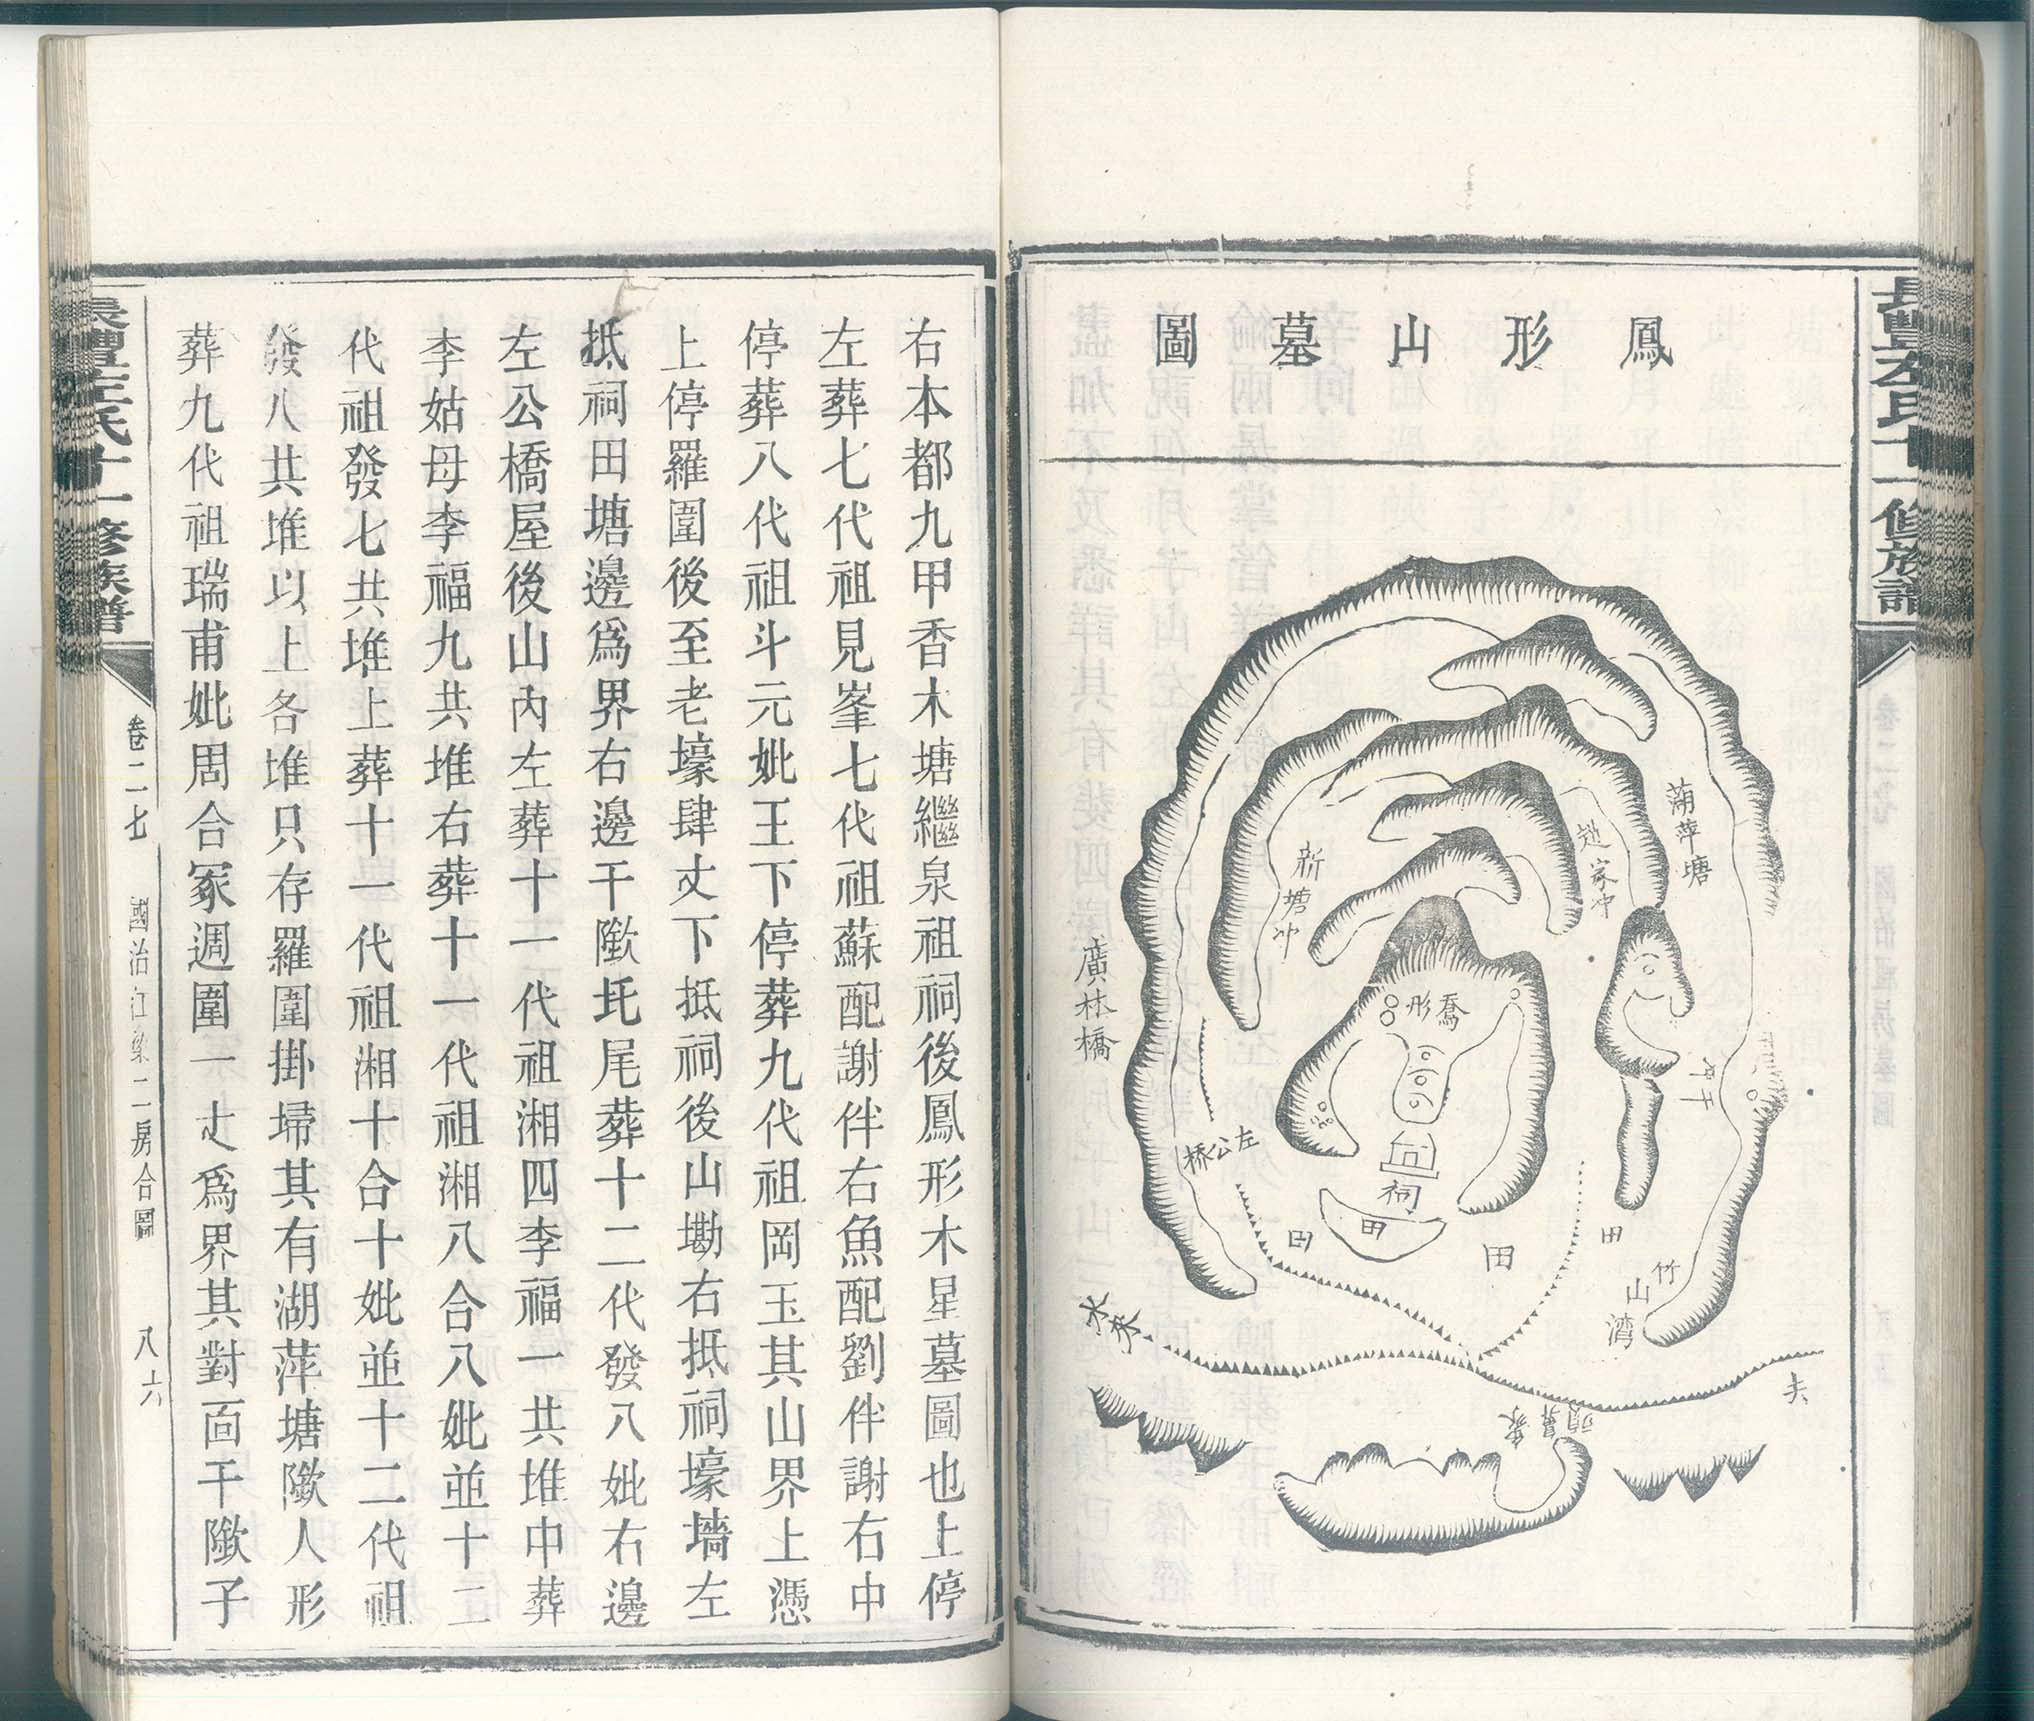 鳳形山墓圖
蒲萍塘
趙家冲
新塘冲
廣林橋
喬形
干冲
左公桥
祠
田
田
田
田
竹山湾
水來
去
象鼻頭
長豐左氏十一修族譜
右本都九甲香木塘繼泉祖祠後鳳形木星墓圖也上停
左葬七代祖見峯七代祖蘇配謝伴右魚配劉伴謝右中
停葬八代祖斗元妣王下停葬九代祖岡玉其山界上憑
上停羅圍後至老壕肆丈下抵祠後山勘右抵祠壕墻左
抵祠田塘邊為界右邊干隞圫尾葬十二代發八妣右邊
左公橋屋後山內左葬十一代祖湘四李福一共堆中葬
李姑母李福九共堆右葬十一代祖湘八合八妣並十二
代祖發七共堆上葬十一代祖湘十合十妣並十二代祖
發八共堆以上各堆只存羅圍掛掃其有湖萍塘隞人形
葬九代祖瑞甫妣周合冢週圍一丈為界其對面干隞子
長豐左氏十一修族譜
卷二七
國治
二房合圖
八六